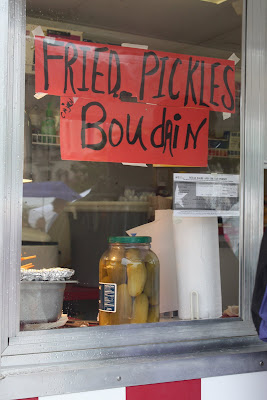 FRIED PICKLES
BOUdAiN